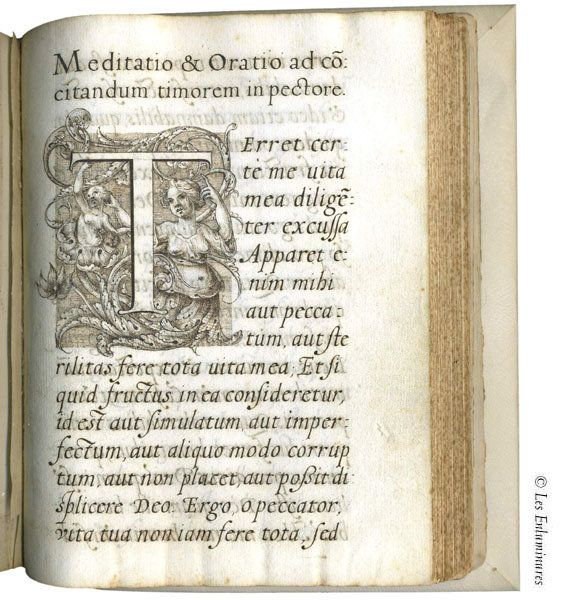 Meditatio & Oratio ad cō:
citandum timorem in pectore.
TErret cer-
te me uita
mea diligē:
ter excussa
Apparet e-
nim mihi
aut pecca-
tum, aut ste
rilitas fere tota uita mea; Et si
quid fructus in ea consideretur,
id est aut simulatum aut imper-
fectum, aut aliquo modo corrup
tum, aut non placet, aut possit di
splicere Deo. Ergo, o peccator,
vita tua non iam fere tota, sed
© Les Enluminures